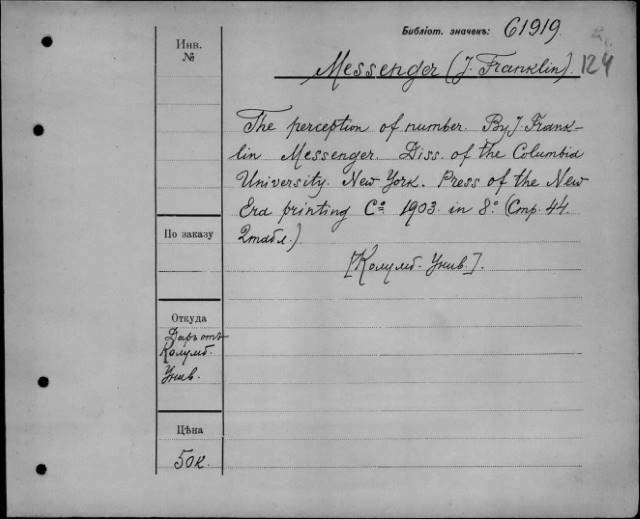 Библіот. значекъ: 61919.
Инв.
№
Messenger (J. Franklin). 124
The perception of number. By J. Frank-
lin Messenger. Diss. of the Columbia
University. New York. Press of the New
Era printing Cº 1903. in 8.º (Стр. 44.
2 табл.)
По заказу
[Колумб. Унив.].
Откуда
Даръ отъ
Колумб.
Унив.
Цѣна
50 к.